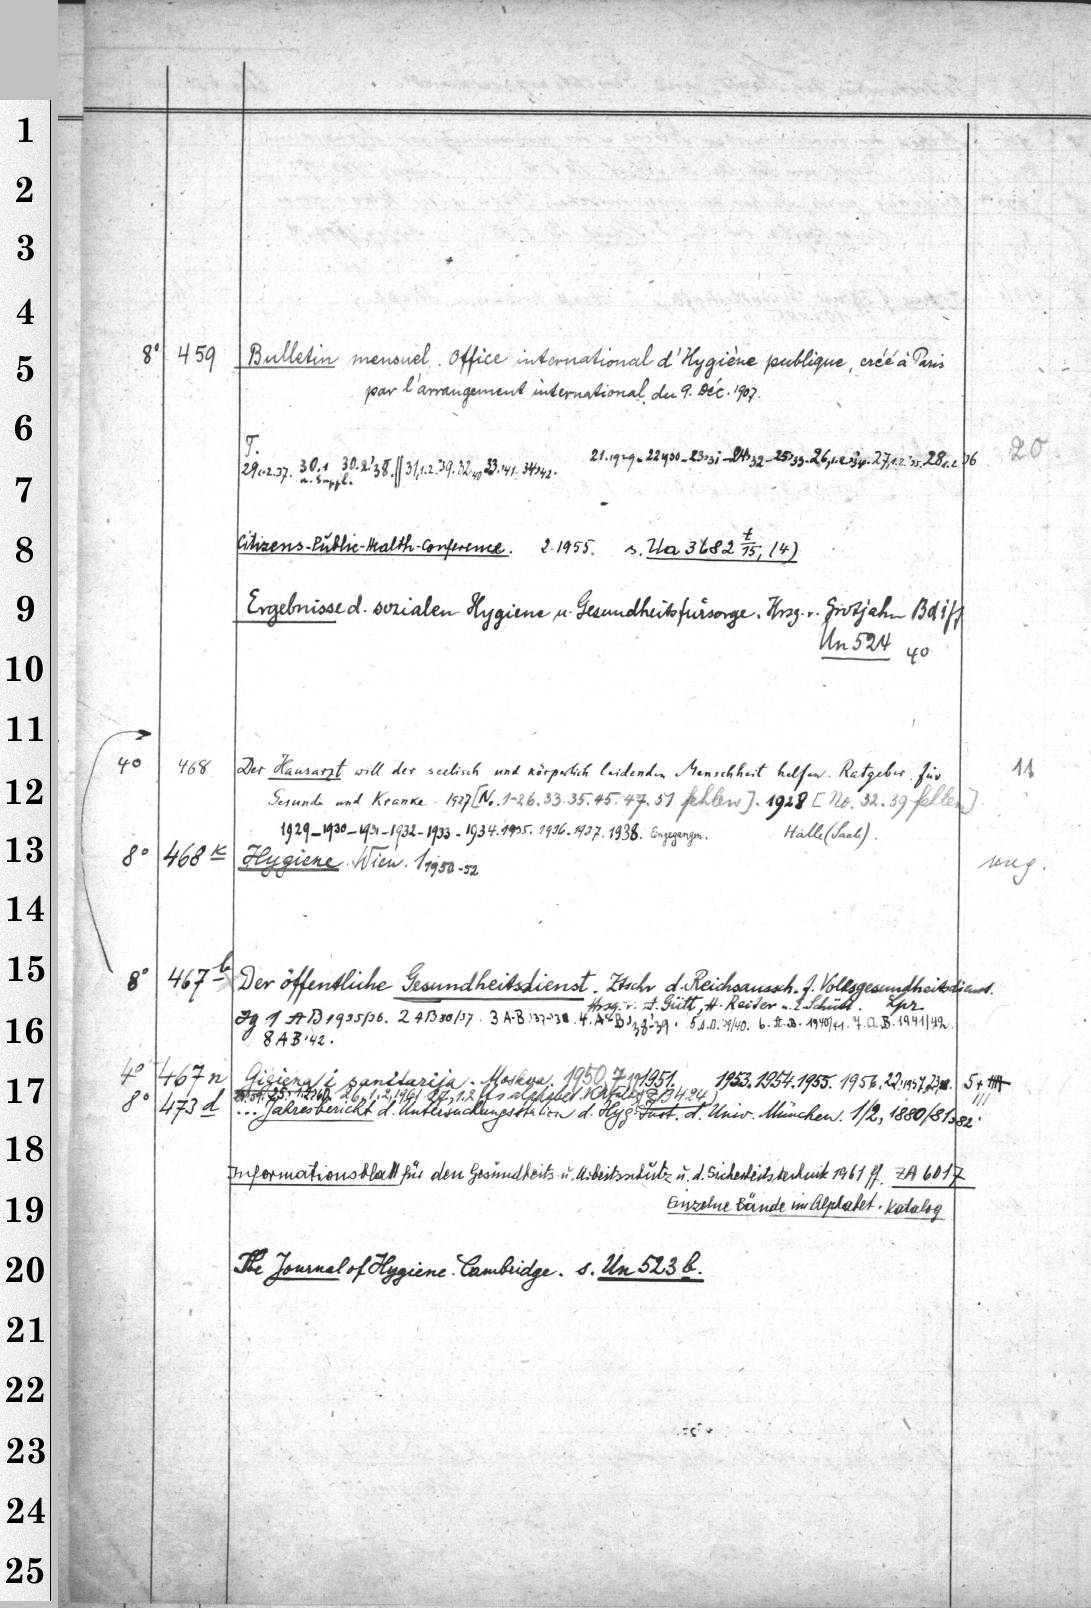 1
2
3
4
8° 459 Bulletin mensuel. Office international d'Hygiène publique, créé à Paris
5
par l'arrangement international du 9. Déc. 1907.
6
T. 20
21.1929-22.1930-23.1931-24.1932-25.1933-26,1.2.1934-27,1.2.1935. 28,1.2.1936
29,1.2.37. 30.1 30.2'38. 31,1.2.39. 32.40 33.1941. 34.1942.
u. Suppl.
7
8
Citizens-Public-Health-Conference. 2.1955. s. Ua 3682 t/15, (4)
9
Ergebnisse d. sozialen Hygiene u. Gesundheitsfürsorge. Hrsg. v. Grotjahn Bd i ff
Un 524 4°
10
11
4° 468 Der Hausarzt will der seelisch und körperlich leidenden Menschheit helfen. Ratgeber für 11
12
Gesunde und Kranke. 1927 [No. 1-26.33.35.45.47.51 fehlen]. 1928 [No. 32.39 fehlen]
1929-1930-1931-1932-1933-1934.1935.1936.1937.1938. Eingegangen. Halle (Saale).
13
8° 468 K Hygiene. Wien. 1 1950-52 ung.
14
15
8° 467 b Der öffentliche Gesundheitsdienst. Ztschr d. Reichsaussch. f. Volksgesundheitsdienst.
Hrsg. v. A. Gütt, H. Reiter. Lpz.
16
Jg 1 AB 1935/36. 2 AB 36/37. 3 A-B 1937-38. 4. A-B 1938-39. 5.A.B. 39/40. 6. A.B. 1940/41. 7. A.B. 1941/42.
8 AB '42.
4° 467 n Gigiena i sanitarija. Moskva. 1950 1951. 1953.1954.1955. 1956. 22.1957.
17
8° 473 d ... Jahresbericht d. Untersuchungsstation d. Hyg. Inst. d. Univ. München. 1/2, 1880/81-82.
18
Informationsblatt für den Gesundheits- u. Arbeitsschutz u. d. Sicherheitstechnik 1961 ff. ZA 6017
19
Einzelne Bände im Alphabet. Katalog
20
The Journal of Hygiene. Cambridge. s. Un 523 b.
21
22
23
24
25